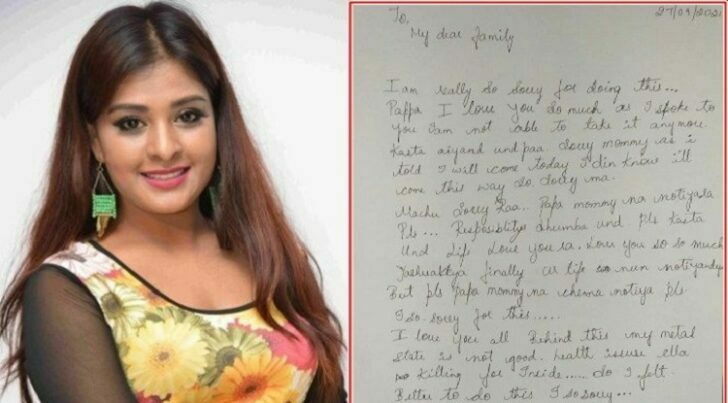 To, 27/09/2021
My dear family
I am really so sorry for doing this...
Pappa I love you so much as I spoke to
you I am not able to take it anymore.
Kasta aiyand und paa. Sorry mommy as i
told I will come today I din know i'll
come this way so sorry ma.
Machu Sorry Raa... Papa mommy na notiyala
Pls... dhumba und. Pls kasta
Und Love you ra. Love you so so much
finally life nun notiyandy
But pls papa mommy na chenna notiya pls
I so sorry for this.....
I love you all Behind this my metal
state is not good. health issuse ella
Killing for Inside..... so I felt
Better to do this I so sorry...